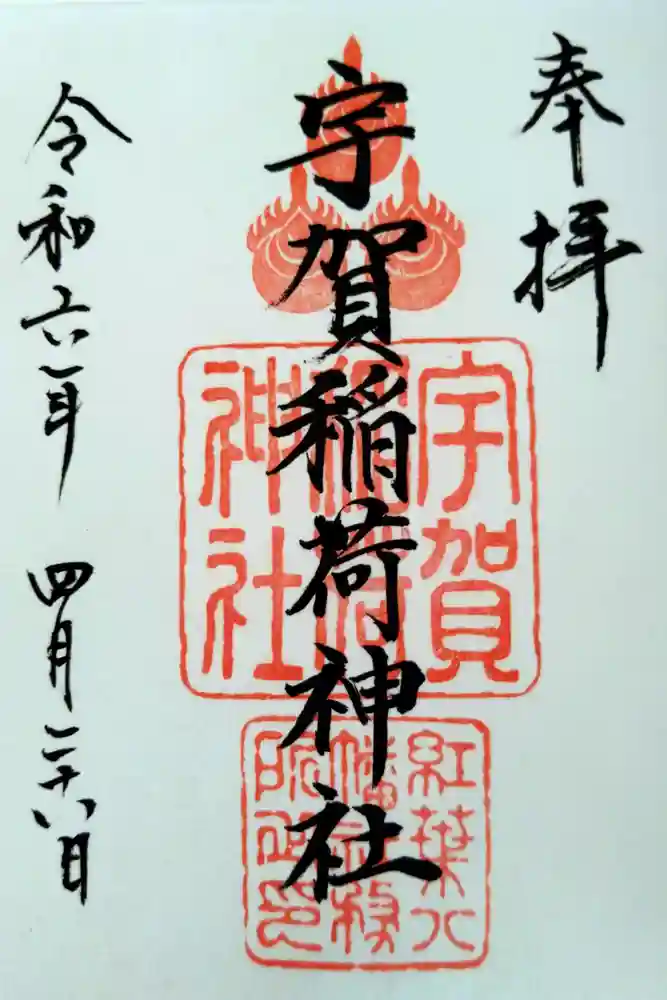 奉拝
宇賀稲荷神社
宇賀
稲荷
神社
紅葉八
幡社務
所之印
令和六年 四月二十八日